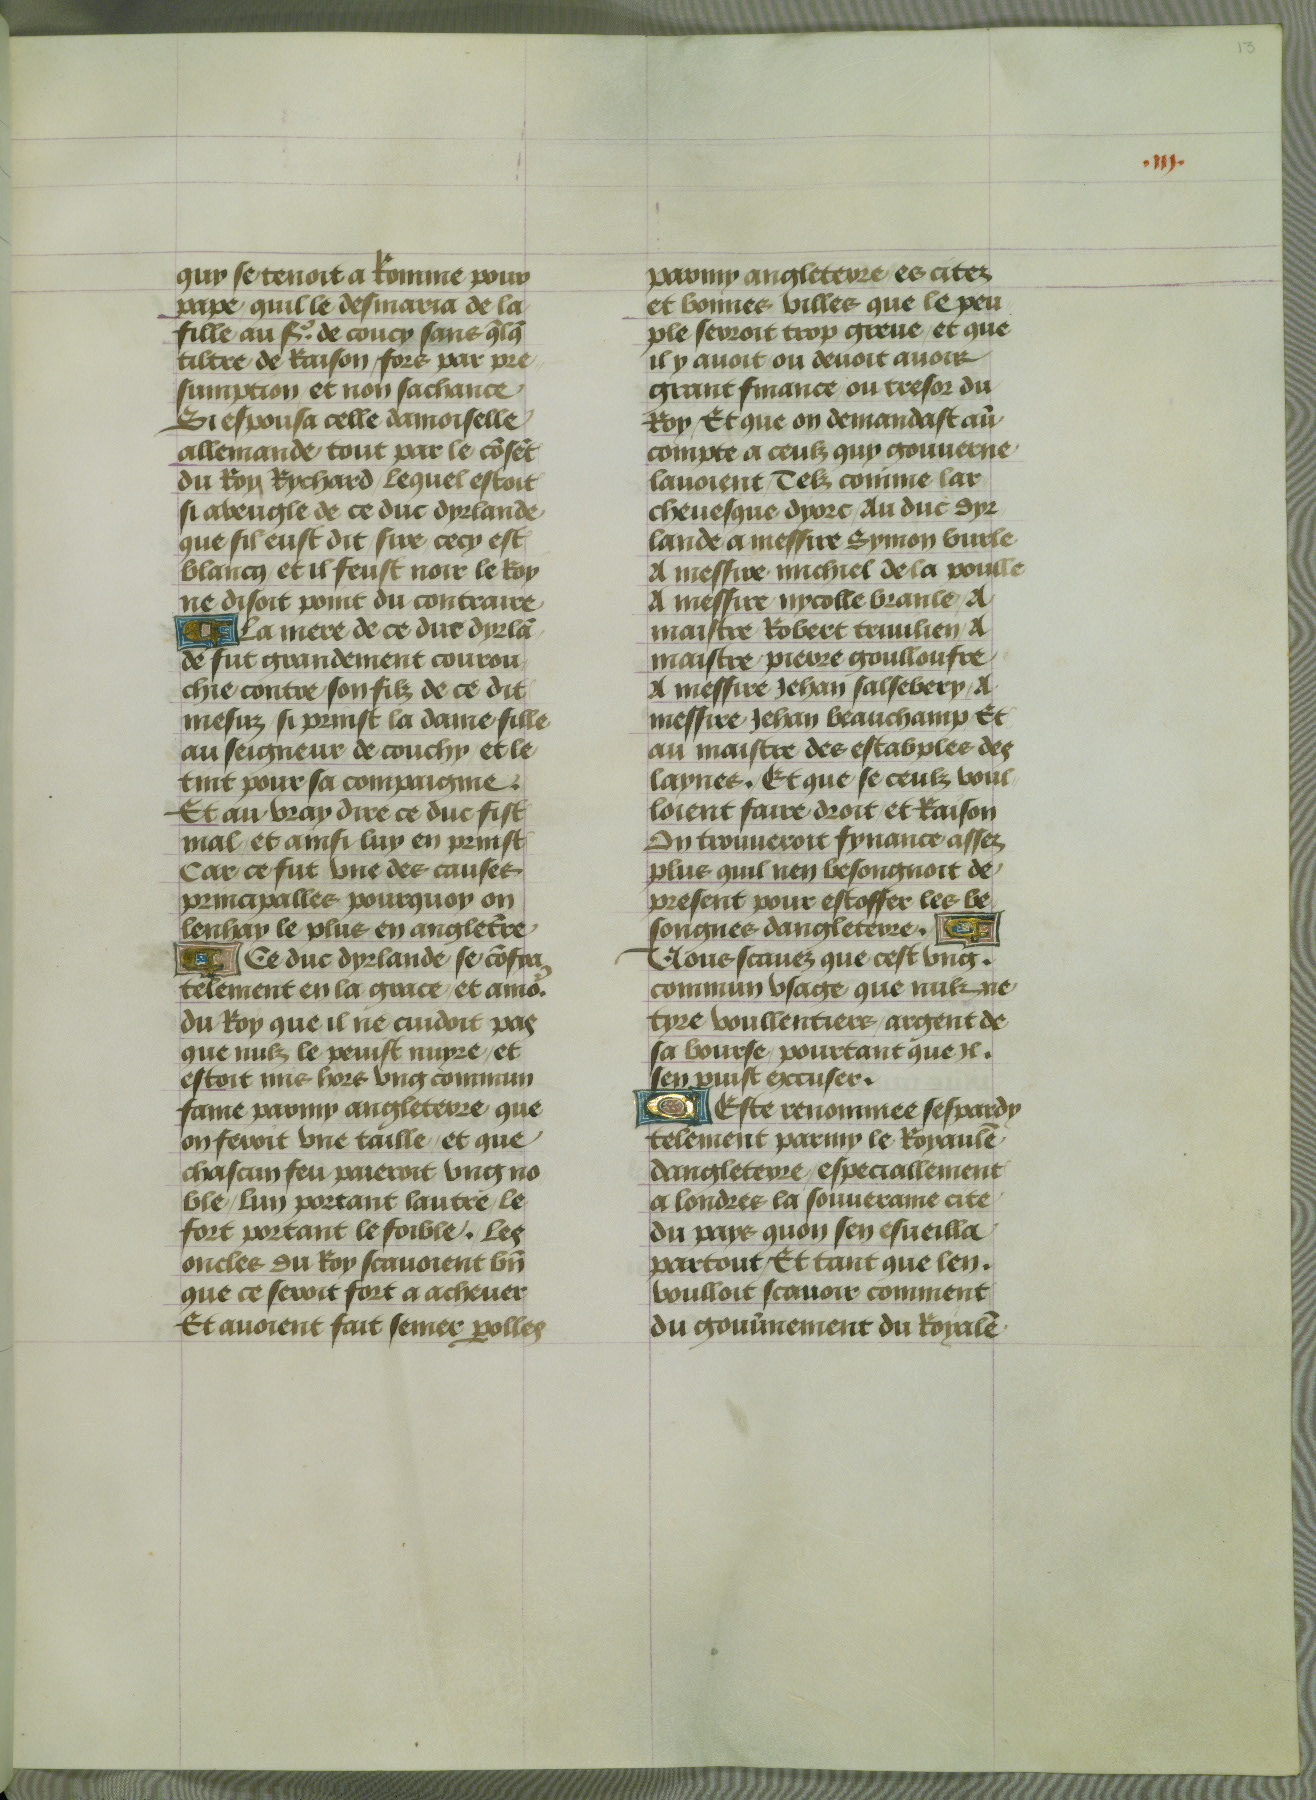 13
.iij.
quy se tenoit a Romme pour
pape quil le desmaria de la
fille au sr. de coucy sans q̃lq̃
tiltre de Raison fors par pre
sumption et non sachance
Si espousa celle damoiselle
allemande tout par le cõsẽt
du Roy Rychard Lequel estoit
si aveugle de ce duc dyrlande
que sil eust dit sire cecy est
blancq et il feust noir le Roy
ne disoit point du contraire
La mere de ce duc dyrlã
de fut grandement courou
chie contre son filz de ce dit
mesuz si prinst la dame fille
au seigneur de couchy et le
tint pour sa compaignie.
Et au vray dire ce duc fist
mal et ainsi luy en prinst
Car ce fut vne des causes
principalles pourquoy on
lenhay le plus en anglet̃re
Ce duc dyrlande se cõfia
telement en la grace et amor.
du Roy que il ne cuidoit pas
que nulz le peuist nuyre et
estoit mis hors vng commun
fame parmy angleterre que
on feroit vne taille et que
chascun feu paieroit vng no
ble / Lun portant lautre le
fort portant le foible. Les
oncles du Roy scauoient bñ
que ce seroit fort a acheuer
Et auoient fait semer polles
parmy angleterre es citez
et bonnes villes que le peu
ple seroit trop greue et que
il y auoit ou deuoit auoir
grant finance ou tresor du
Roy / Et que on demandast aũ
compte a ceulz quy gouuerne
lauoient Telz comme lar
cheuesque dyorc Au duc dyr
lande a messire Symon burle
A messire michiel de la poulle
A messire nycolle branle A
maistre Robert triuilien A
maistre pierre goulloufre
A messire Jehan salsebery A
messire Jehan beauchamp Et
au maistre des estapples des
laynes. Et que se ceulz voul
loient faire droit et Raison
On trouueroit fynance assez
plus quil nen besongnoit de
present pour estoffer les be
songnes dangleterre.
Vous scauez que cest vng.
commun vsage que nulz ne
tyre voullentiers argent de
sa bourse pourtant que il.
sen puist excuser.
Ceste renommee sespardy
telement parmy le Royaulẽ
dangleterre especiallement
a londres la souueraine cite
du pays quon sen esueilla
partout / Et tant que len.
voulloit scauoir comment
du gouũnement du Royalẽ